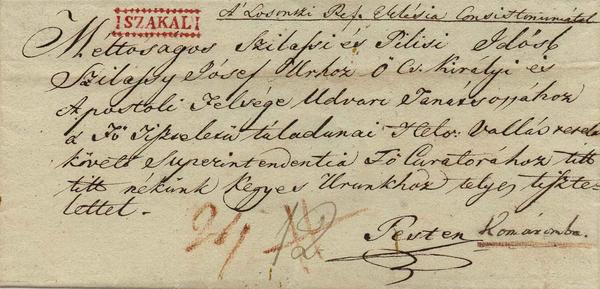 SZAKAL
A' Losontzi Ref. Eklésia Consistoriumától
Méltóságos Szilassi és Pilisi Idősb
Szilassy Jósef Úrhoz Ő Cs. Királyi és
Apostoli Felsége Udvari Tanátsossához
a' Fő Tiszteletű túladunai Helv: Vallás
követő Superintendentia Fő Curatorához titt
titt nékünk kegyes Urunkhoz teljes tiszte-
lettel.
24 12
Pesten Komáromba.